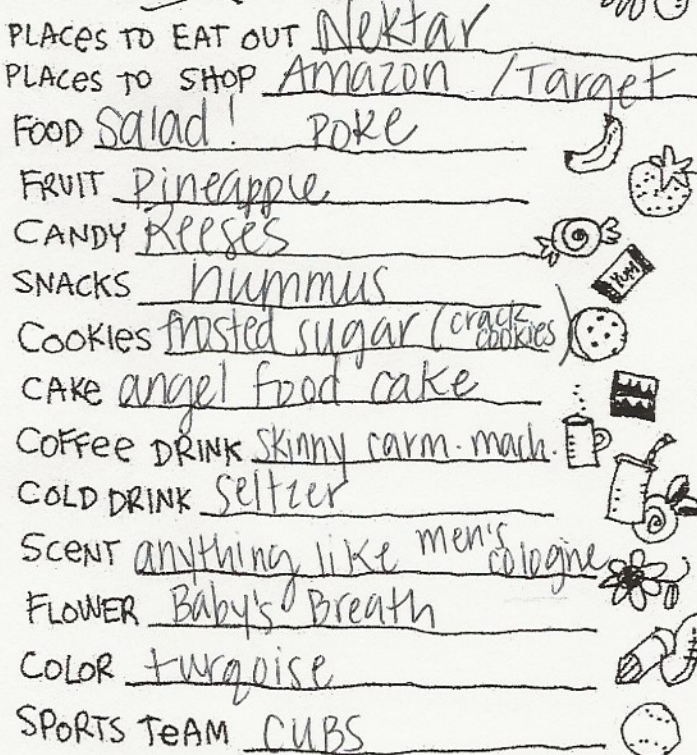 PLACES TO EAT OUT Nektar
PLACES TO SHOP Amazon / Target
FOOD Salad! Poke
FRUIT Pineapple
CANDY Reeses
SNACKS hummus
COOKIES frosted sugar (crack cookies)
CAKE angel food cake
COFFEE DRINK skinny carm. mach.
COLD DRINK Seltzer
SCENT anything like men's cologne
FLOWER Baby's Breath
COLOR turqoise
SPORTS TEAM CUBS
YUM